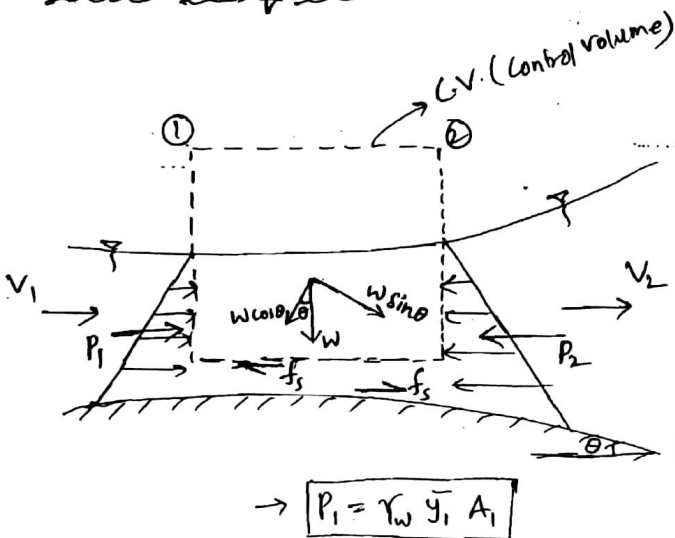 C.V. (Control volume)
① ②
V₁ V₂
W cosθ θ W sinθ
W
P₁ P₂
fₛ
fₛ
θ
→ P₁ = γ_w ȳ₁ A₁